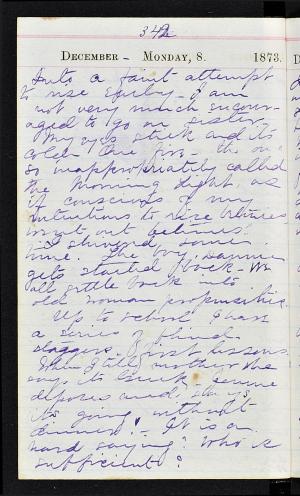 342
DECEMBER - MONDAY, 8. 1873.
a faint attempt
to rise early - I am
not very much encour-
aged to go on, sister.
My eyes stick and it's
cold. The fire - the one
so inappropriately called
the Morning Light, as
if conscious of my
intentions to rise
went out betimes.
I shivered, some
time. The boy, Sammie
gets started back - We
all settle back into
old woman propensities.
Up to school I hear
a series of
- first lessons.
When I tell mother she
says to
and, she is
it's going without
dinner! - It is a
hard saying? Who is
sufficient?